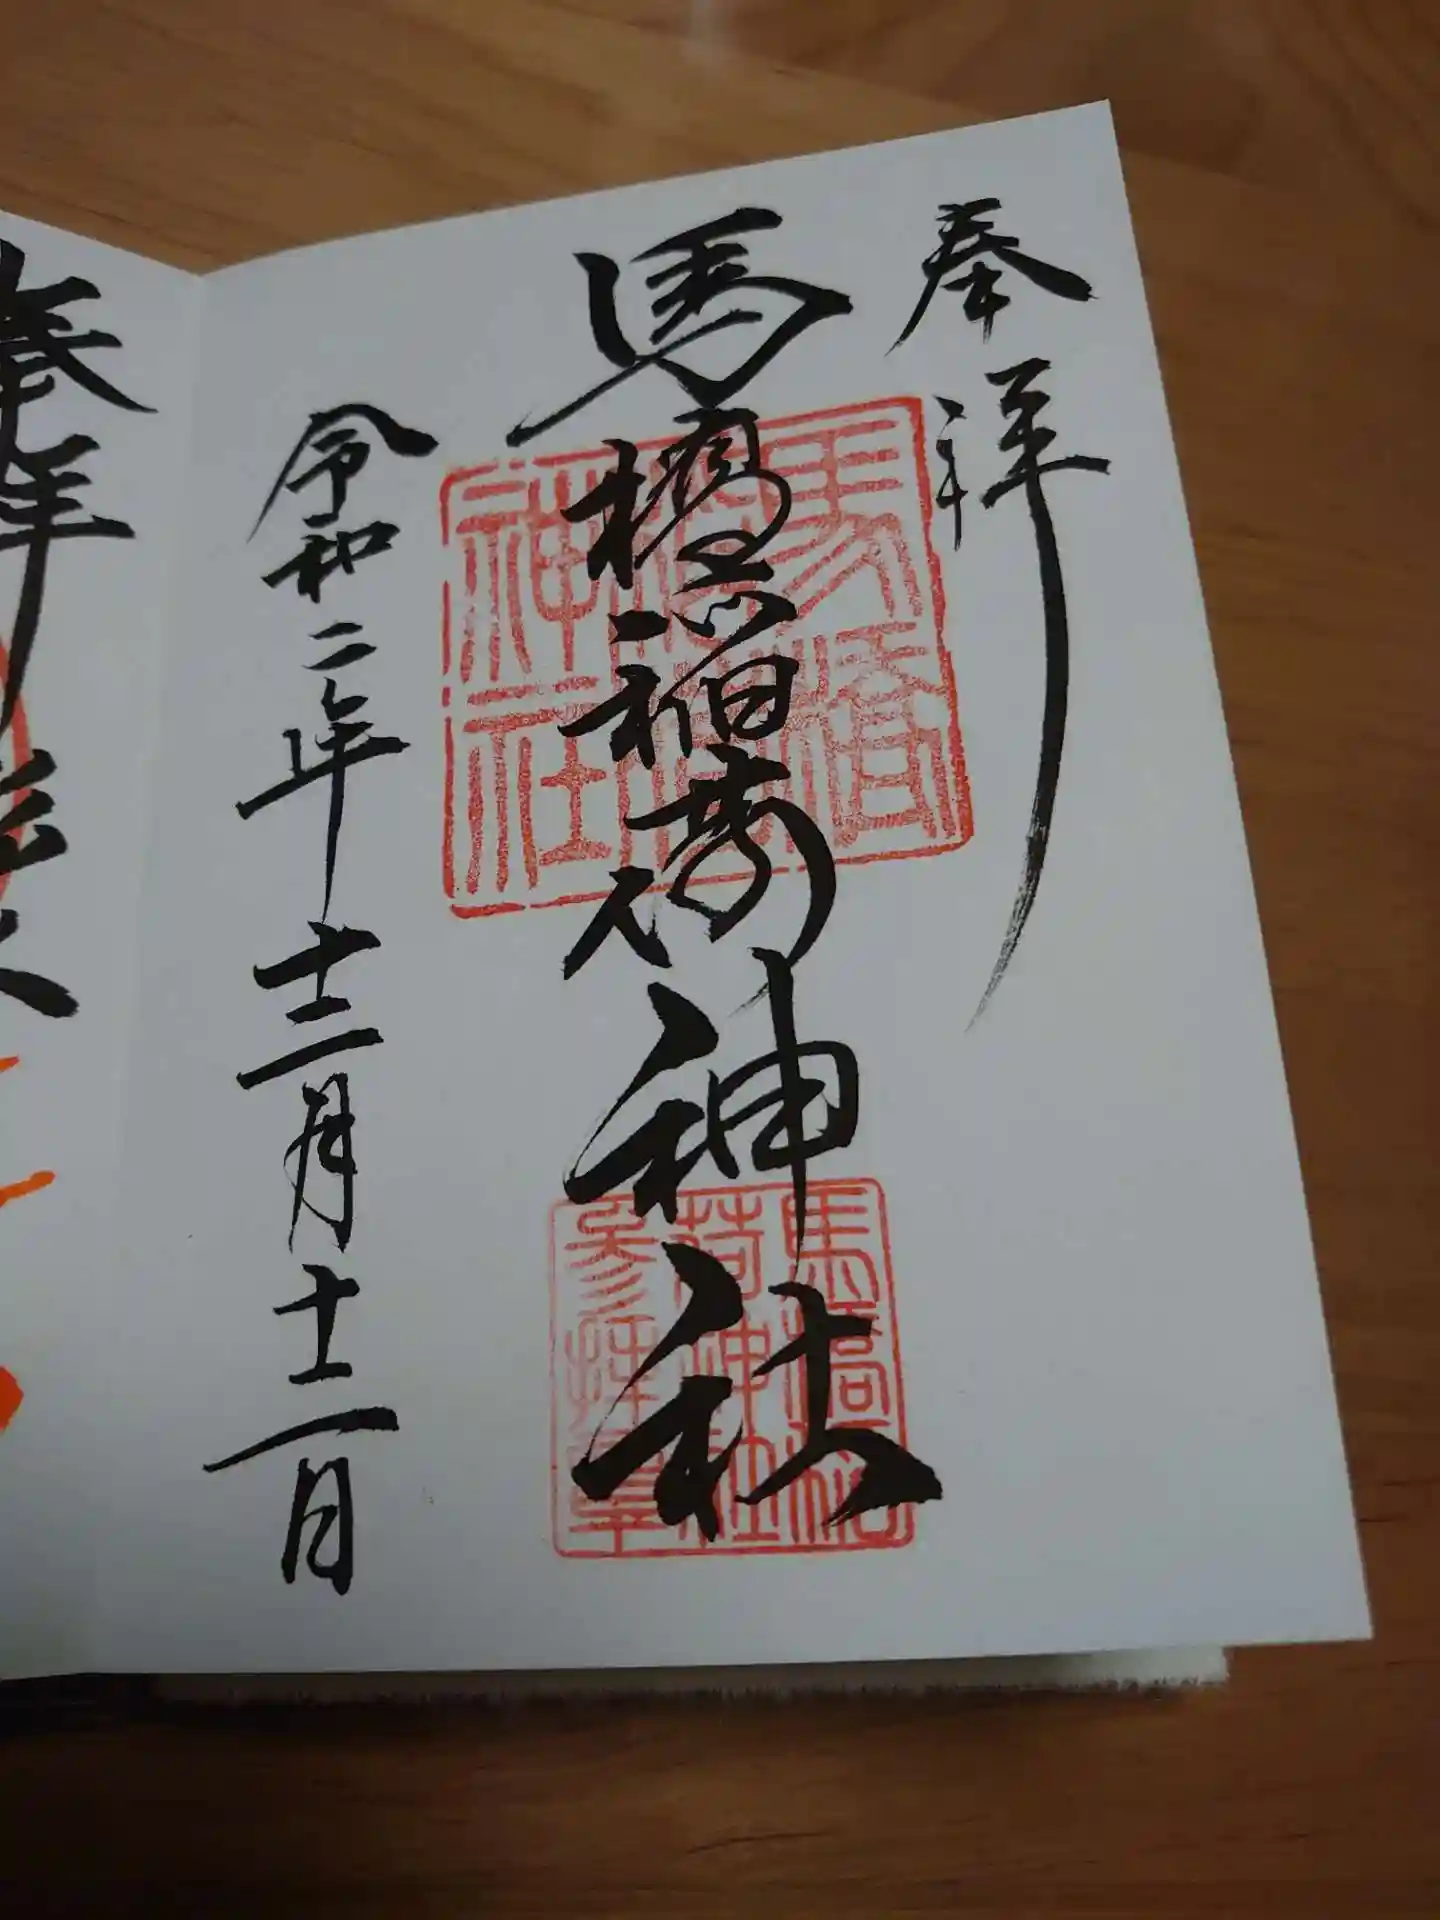 奉拝
馬橋稲荷神社
令和二年十二月十二日
馬橋
稲荷
神社
馬橋稲
荷神社
参拝章
奉拝